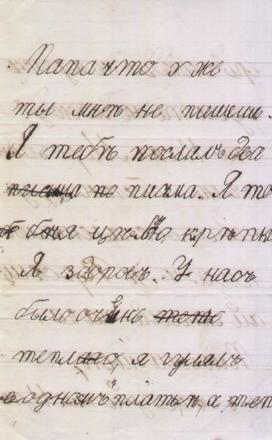 Папа что у же
ты мнѣ не пишешь.
Я тебѣ послалъ два
письма по писма. Я те
бя цѣлую крѣпко
Я здоровъ. У насъ
было очень тепе
тепло я гулялъ
в одномъ платьѣ а теп